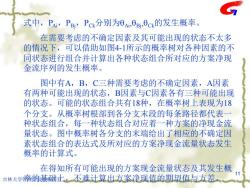 式中，PAi，PBj，PCk分别为θAi,θBj,θCk的发生概率。
在需要考虑的不确定因素及其可能出现的状态不太多
的情况下，可以借助如图4-1所示的概率树对各种因素的不
同状态进行组合并计算出各种状态组合所对应的方案净现
金流序列的发生概率。
图中有A、B、C三种需要考虑的不确定因素，A因素
有两种可能出现的状态，B因素与C因素各有三种可能出现
的状态。可能的状态组合共有18种，在概率树上表现为18
个分支。从概率树根部到各分支末段的每条路径都代表一
种状态组合，每一种状态组合对应着一种方案的净现金流
量状态。图中概率树各分支的末端给出了相应的不确定因
素状态组合的表达式及所对应的方案净现金流量状态发生
概率的计算式。
在得知所有可能出现的方案现金流量状态及其发生概
率的基础上，不难计算出方案净现值的期望值与方差。
吉林大学